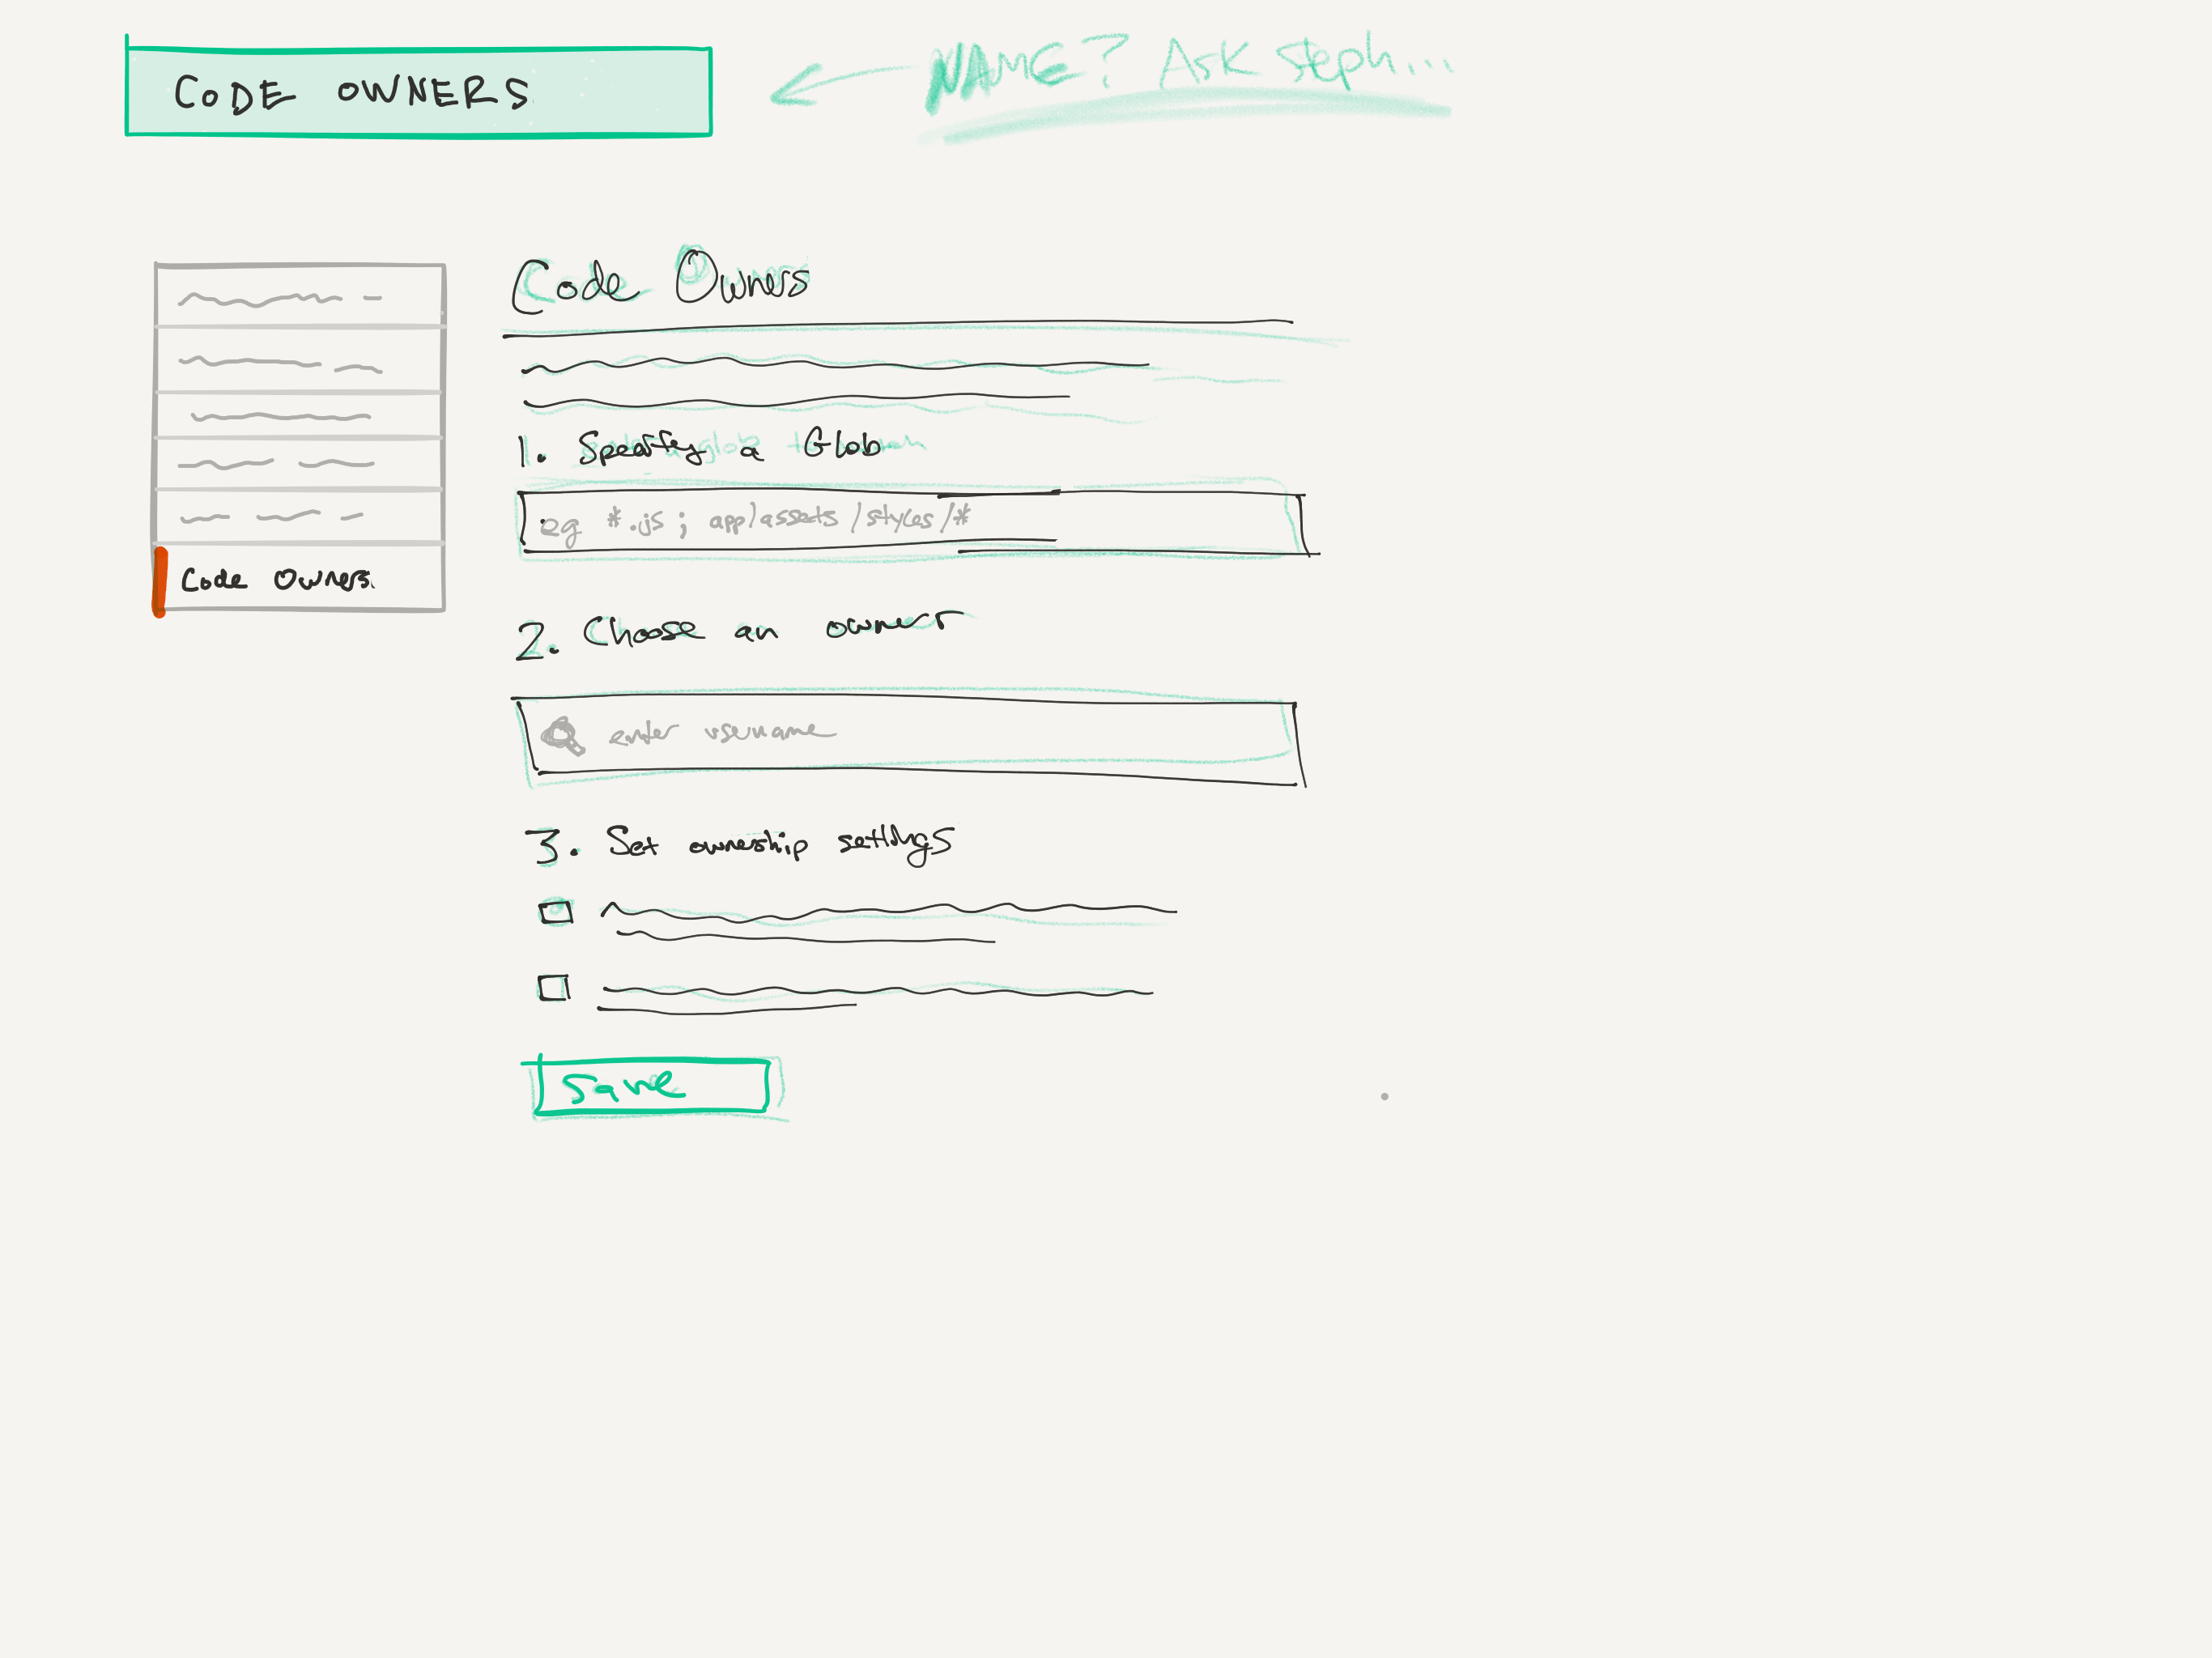 CODE OWNERS
NAME? Ask Steph...
Code Owners
Code Owners
1. Specify a Glob
eg *.js ; app/assets/styles/*
2. Choose an owner
enter username
3. Set ownership settings
Save